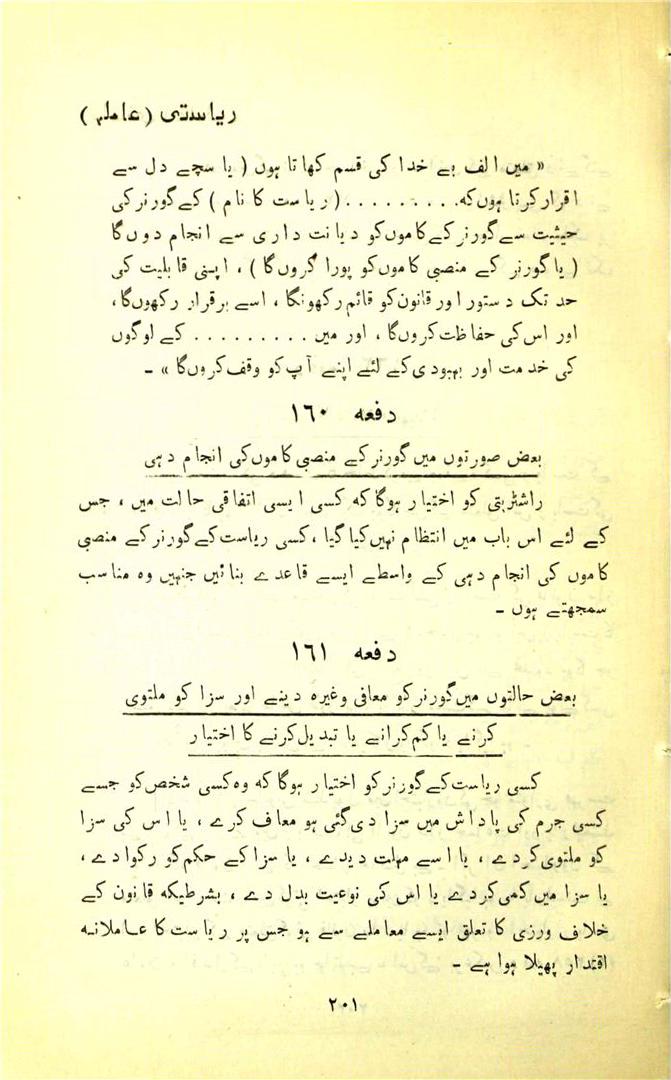 ریاستی (عاملہ)
« میں الف بے خدا کی قسم کھاتا ہوں (یا سچے دل سے
اقرار کرتا ہوں کہ . . . . . . . . . (ریاست کا نام) کے گورنر کی
حیثیت سے گورنر کے کاموں کو دیانت داری سے انجام دوں گا
(یا گورنر کے منصبی کاموں کو پورا کروں گا) ، اپنی قابلیت کی
حد تک دستور اور قانون کو قائم رکھونگا ، اسے برقرار رکھوں گا،
اور اس کی حفاظت کروں گا ، اور میں . . . . . . . . . کے لوگوں
کی خدمت اور بہبودی کے لئے اپنے آپ کو وقف کروں گا » ۔
دفعہ ۱۶۰
بعض صورتوں میں گورنر کے منصبی کاموں کی انجام دہی
راشٹرپتی کو اختیار ہوگا کہ کسی ایسی اتفاقی حالت میں ، جس
کے لئے اس باب میں انتظام نہیں کیا گیا ، کسی ریاست کے گورنر کے منصبی
کاموں کی انجام دہی کے واسطے ایسے قاعدے بنائیں جنہیں وہ مناسب
سمجھتے ہوں ۔
دفعہ ۱۶۱
بعض حالتوں میں گورنر کو معافی وغیرہ دینے اور سزا کو ملتوی
کرنے یا کم کرانے یا تبدیل کرنے کا اختیار
کسی ریاست کے گورنر کو اختیار ہوگا کہ وہ کسی شخص کو جسے
کسی جرم کی پاداش میں سزا دی گئی ہو معاف کرے ، یا اس کی سزا
کو ملتوی کردے ، یا اسے مہلت دیدے ، یا سزا کے حکم کو رکوا دے ،
یا سزا میں کمی کردے یا اس کی نوعیت بدل دے ، بشرطیکہ قانون کے
خلاف ورزی کا تعلق ایسے معاملے سے ہو جس پر ریاست کا عاملانہ
اقتدار پھیلا ہوا ہے ۔
۲۰۱